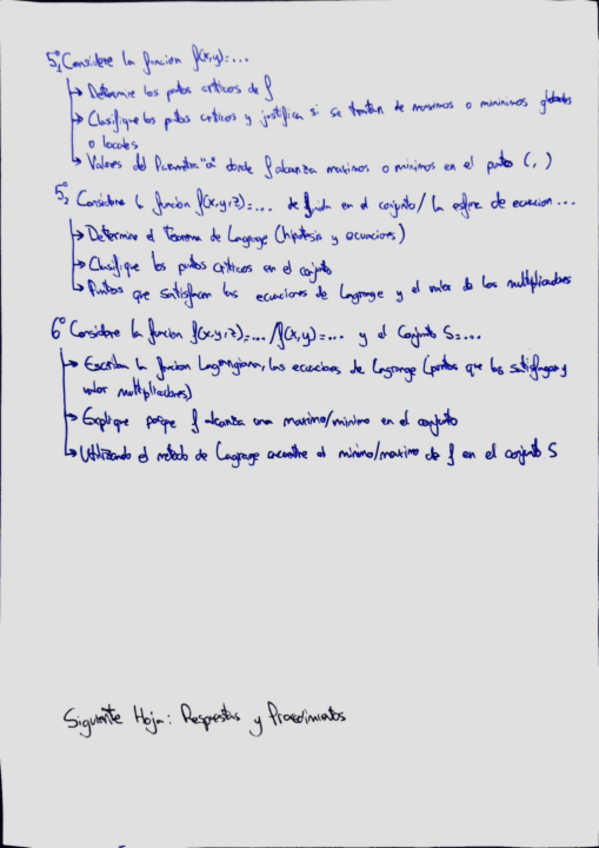 5º₁ Considere la funcion f(x,y)=...
→ Determine los ptos criticos de f
→ Clasifique los ptos criticos y justifica si se tratan de maximos o minimos globales
o locales
→ Valores del Parametro "a" donde f alcanza maximos o minimos en el punto ( , )
5º₂ Considere la función f(x,y,z)=... definida en el conjunto / la esfera de ecuacion ...
→ Determine el Teorema de Lagrange (hipótesis y ecuaciones)
→ Clasifique los puntos criticos en el conjunto
→ Puntos que satisfacen las ecuaciones de Lagrange y el valor de los multiplicadores
6º Considere la funcion f(x,y,z)=... / f(x,y)=... y el Conjunto S=...
→ Escriba la funcion Lagrangiana, las ecuaciones de Lagrange (puntos que las satisfagan y
valor multiplicadores)
→ Explique porque f alcanza una maximo/minimo en el conjunto
→ Utilizando el metodo de Lagrange encuentre el minimo/maximo de f en el conjunto S
Siguiente Hoja: Respuestas y Procedimientos